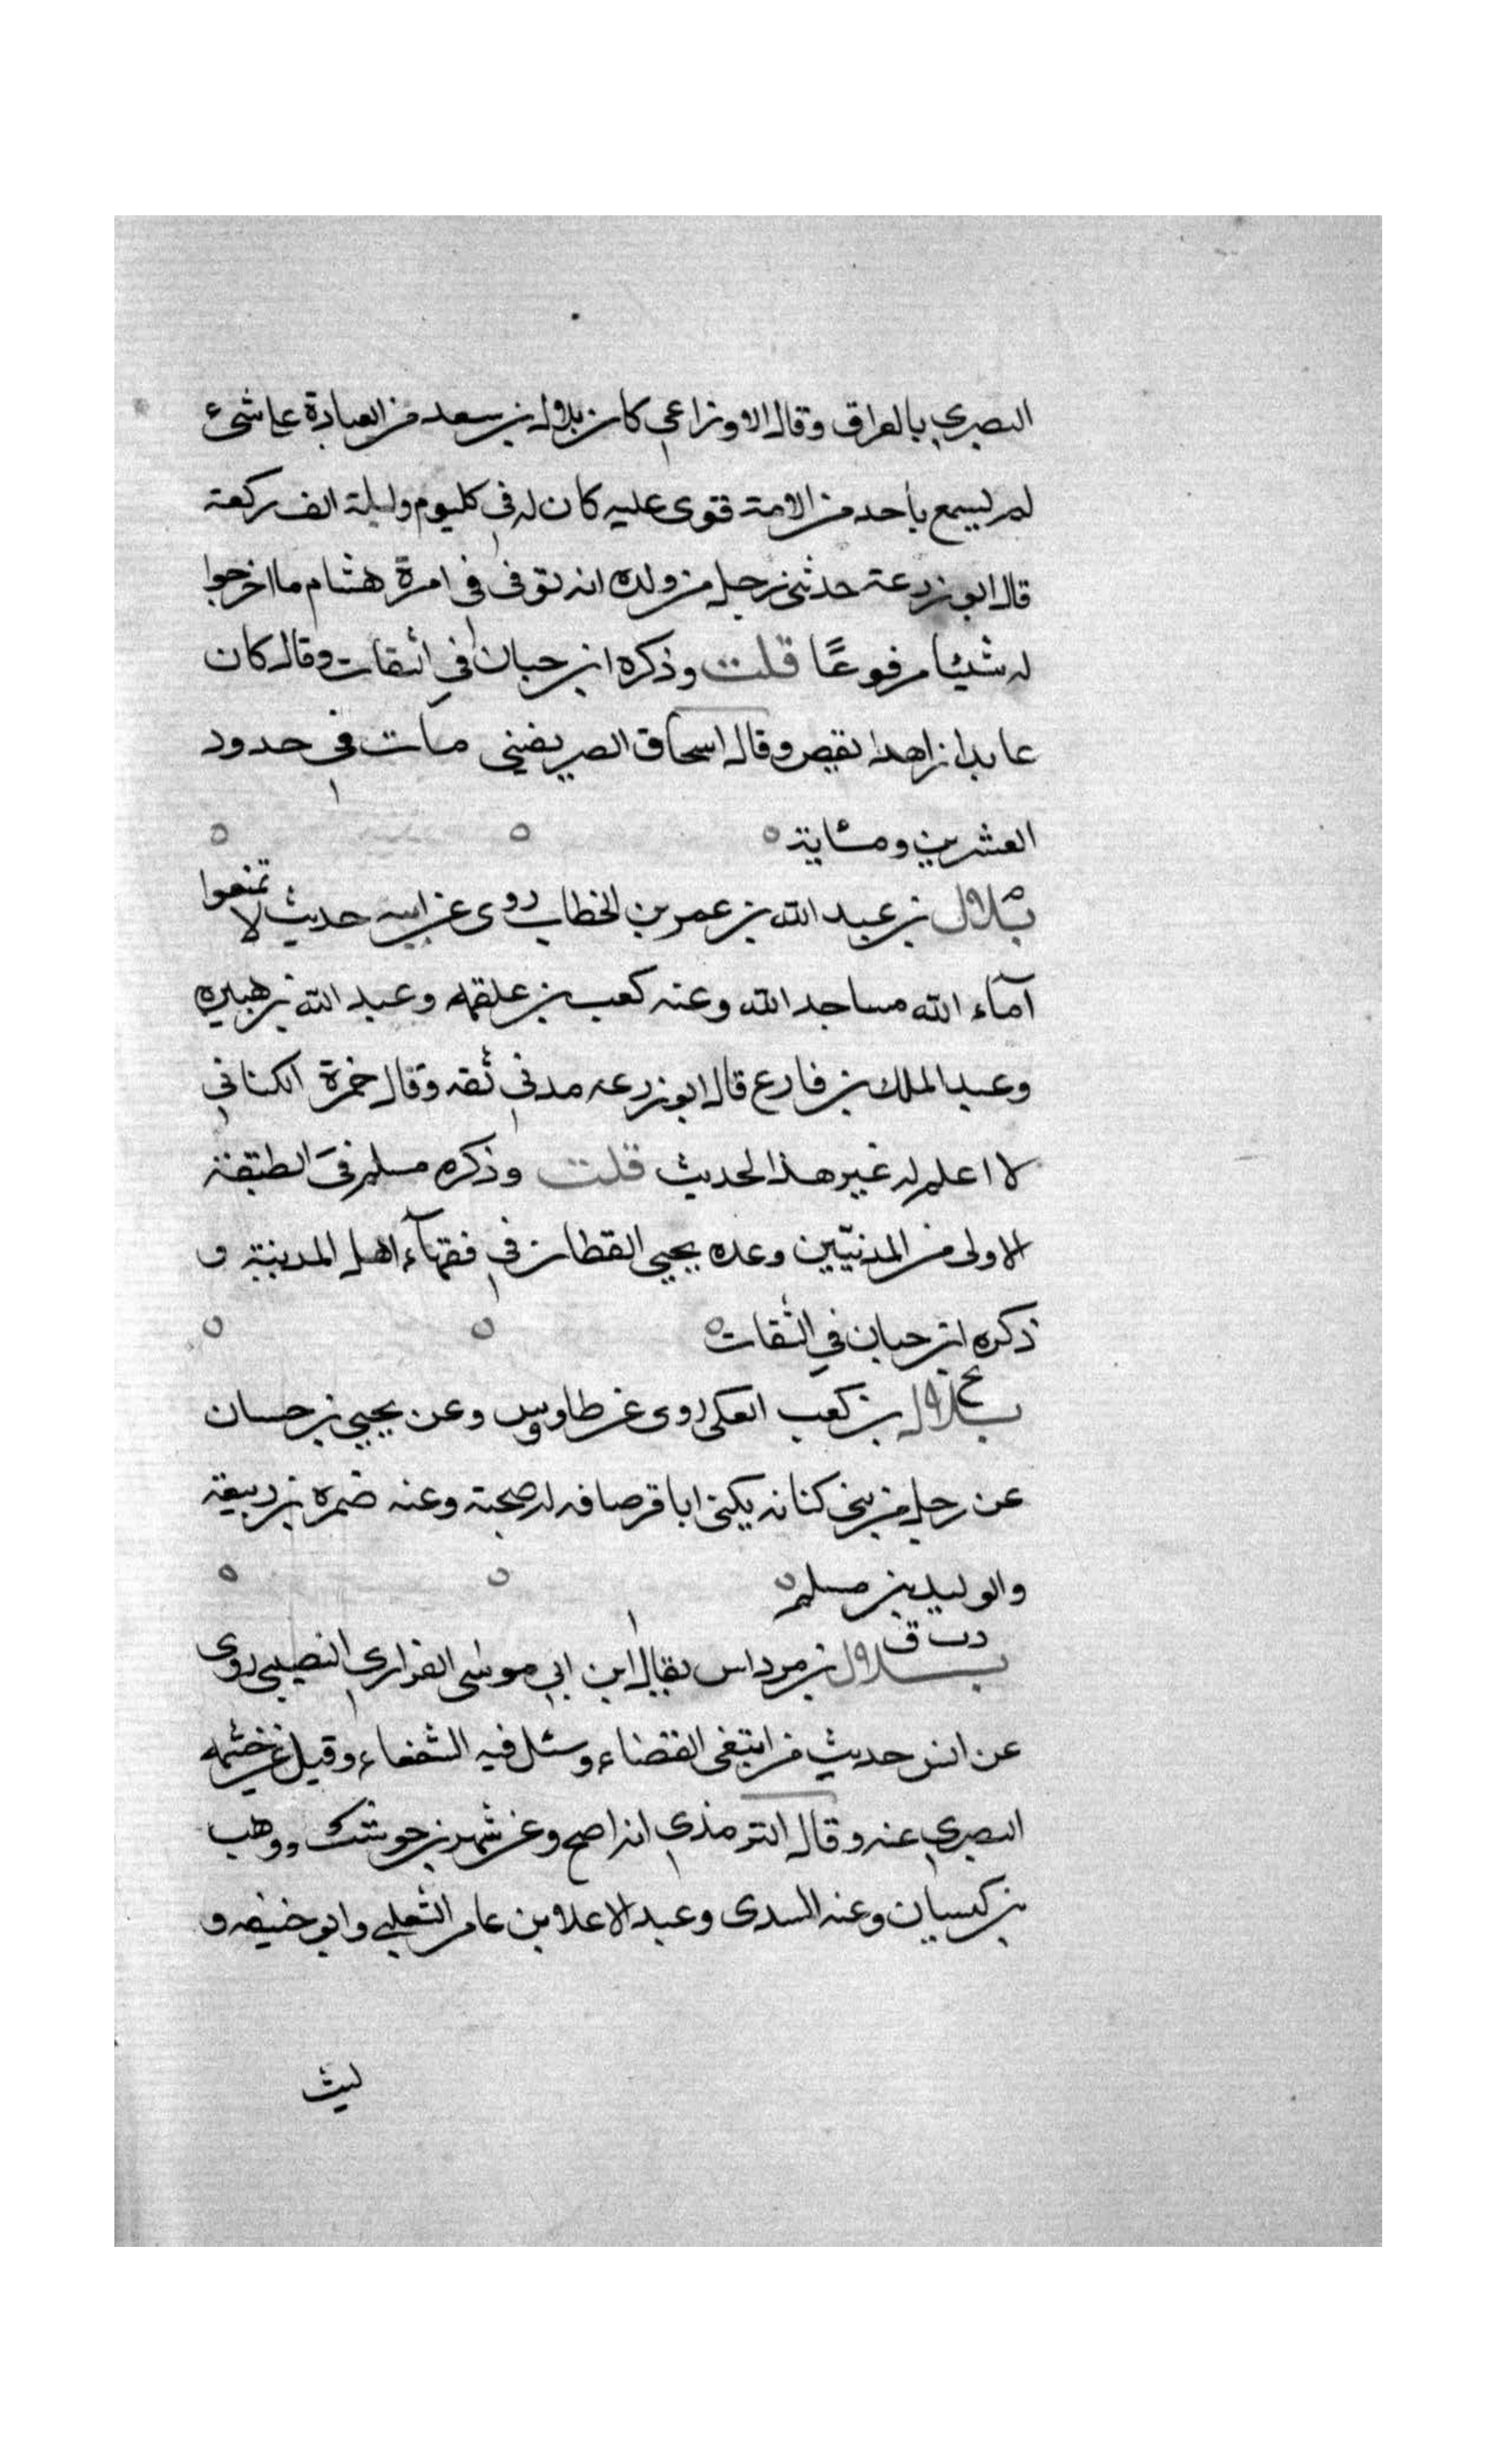 البصري بالعراق وقال الاوزاعي كان بلال بن سعد من العبادة على شيء
لم يسمع باحد من الامة قوى عليه كان له في كل يوم وليلة الف ركعة
قال ابو زرعة حدثني رجل من ولده انه توفى في امرة هشام ما اخرجوا
له شيئا مرفوعًا قلت وذكره ابن حبان في الثقات وقال كان
عابدا زاهدا يقص وقال اسحاق الصريفيني مات في حدود
العشرين ومئاية
م
بلال بن عبد الله بن عمر بن الخطاب روى عن ابيه حديث لا تمنعوا
آماء الله مساجد الله وعنه كعب بن علقمه وعبد الله بن هبيره
وعبد الملك بن فارع قال ابو زرعه مدني ثقه وقال حمزة الكناني
لا اعلم له غير هذا الحديث قلت وذكره مسلم في الطبقة
الاولى من المدنيّين وعده يحيي القطان في فقهآء اهل المدينة و
ذكره ابن حبان في الثقات
بخ
بلال بن كعب العكى روى عن طاوس وعن يحيي بن حسان
عن رجل من بني كنانه يكنى ابا قرصافه له صحبة وعنه ضمره بن ربيعة
والوليد بن مسلم
د ت ق
بلال بن مرداس يقال ابن ابي موسى الفزاري النصيبي روى
عن انس حديث من ابتغى القضاء وسئل فيه الشفعاء وقيل عن خيثمه
البصري عنه وقال الترمذي انه اصح وعن شهر بن حوشب ووهب
بن كيسان وعنه السدى وعبد الاعلا بن عامر الثعلبي وابو حنيفه و
ليث